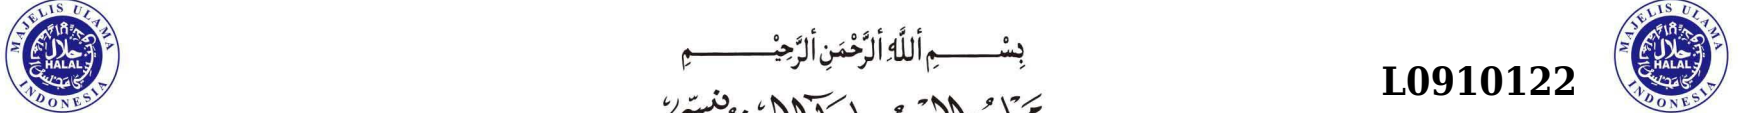 MAJELIS ULAMA INDONESIA
حلال
HALAL
بِسْــــــمِ أللَّهِ ألرَّحْمَنِ ألرَّحِيْــــــــمِ
L0910122
MAJELIS ULAMA INDONESIA
حلال
HALAL